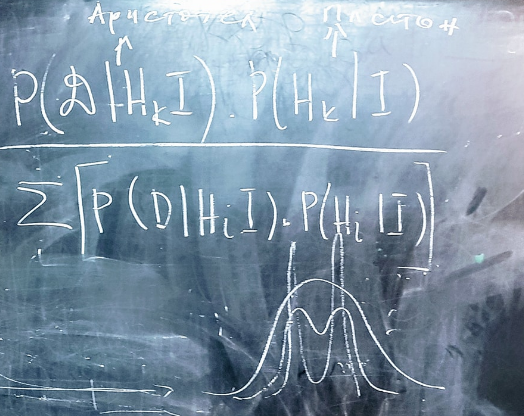 Аристотел Платон
P(D|HₖI)·P(Hₖ|I)
Σ[P(D|HᵢI)·P(Hᵢ|I)]